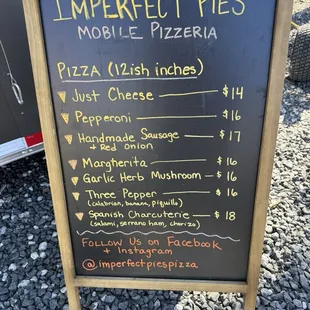 IMPERFECT PIES
MOBILE PIZZERIA
PIZZA (12ish inches)
Just Cheese — $14
Pepperoni — $16
Handmade Sausage — $17
+ Red Onion
Margherita — $16
Garlic Herb Mushroom — $16
Three Pepper — $16
(calabrian, banana, piquillo)
Spanish Charcuterie — $18
(salami, serrano ham, chorizo)
Follow Us on Facebook
+ Instagram
@imperfectpiespizza